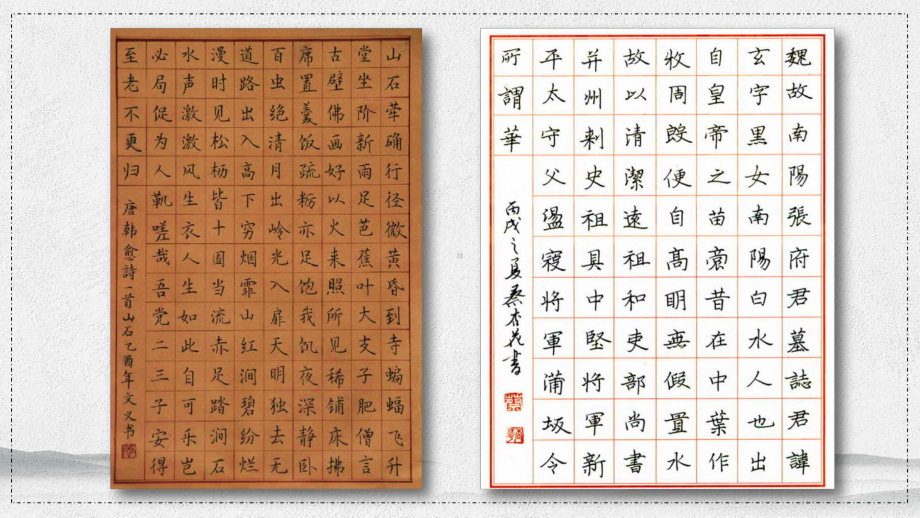 山石荦确行径微黄昏到寺蝙蝠飞升
堂坐阶新雨足芭蕉叶大支子肥僧言
古壁佛画好以火来照所见稀铺床拂
席置羹饭疏粝亦足饱我饥夜深静卧
百虫绝清月出岭光入扉天明独去无
道路出入高下穷烟霏山红涧碧纷烂
漫时见松枥皆十围当流赤足踏涧石
水声激激风生衣人生如此自可乐岂
必局促为人鞿嗟哉吾党二三子安得
至老不更归
唐韩愈詩一首山石乙酉年文义书
魏故南陽張府君墓誌君諱
玄字黑女南陽白水人也出
自皇帝之苗裔昔在中葉作
牧周殷便自高明無假置水
故以清潔遠祖和吏部尚書
并州刺史祖具中堅將軍新
平太守父盪寇將軍蒲坂令
所謂華
丙戌之夏蔡杏花書